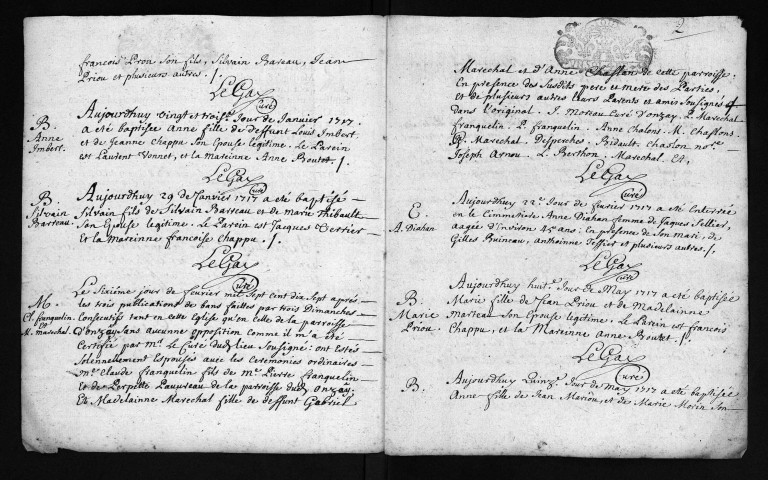 françois Pron Son fils, Silvain Bareau, Jean
Priou et plusieurs autres ./.
LeGay
Curé
Aujourdhuy Vingt et trois.e Jour de Janvier 1717.
B. a eté baptisee Anne fille de deffunt Louis Imbert
Anne et de Jeanne Chappu Son Epouse legitime. Le Parein
Imbert. est Laurent Vonnet, et la Mareinne Anne Boutet ./.
LeGay
Curé
B. Aujourdhuy 29 de Janvier 1717 a eté baptisé
Silvain Silvain fils de Silvain Barreau et de marie Thibault
Barreau. Son Epouse legitime. Le Parein est Jacques Terrier
et la Mareinne francoise Chappu ./.
LeGay
Curé
Le Sixiéme jour de fevrier mil Sept cent dix Sept aprés
M. les trois publications de bans faittes par trois Dimanches
Cl. franquelin Consecutifs tant en cette Eglise qu'en celle de la parroisse
et
M. mareschal. D'onzay, sans aucunne opposition comme il m'a eté
Certifié par Mr. Le Curé dudt lieu Sousigné: ont estés
Solennallement Espousés avec les Ceremonies ordinaires
Mr. Claude franquelin fils de Mr. Pierre franquelin
et de Perpette Lauureau de la parroisse dudt Onzay,
Et Madelainne Marechal fille de deffunt Gabriel
2
Marechal et d'Anne Chaslon de cette parroisse:
En presence des Susdits pere et mere des Parties,
et de plusieurs autres leurs Parents et amis Sousignés
dans l'original. J. Moreau Curé D'onzay. L. Marechal
franquelin. P. franquelin. Anne Chalons. M. Chaslons.
Marechal. Desperches. Ridault. Chaslon nore.
Joseph Arnou. L. Berthon. Marechal. Et,
LeGay
Curé
Aujourdhuy 22.e Jour de fevrier 1717 a eté Enterrée
E. en le Cimmetiere Anne Diahan femme de Jaques Tellier,
A. Diahan aagée d'Environ 45 ans: En presence de Son mari, de
Gilles Ruineau, anthoinne Tessier et plusieurs autres ./.
LeGay
Curé
Aujourdhuy huit.e Jour de May 1717 a eté baptisée
B. Marie fille de Jean Priou et de Madelainne
Marie marteau Son Epouse legitime. Le Parein est francois
Priou. Chappu, et la Mareinne Anne Boutet ./.
LeGay
Curé
B. Aujourdhuy Quinz.e Jour de May 1717 a eté baptisée
Anne fille de Jean Mariou, et de Marie Morin Son